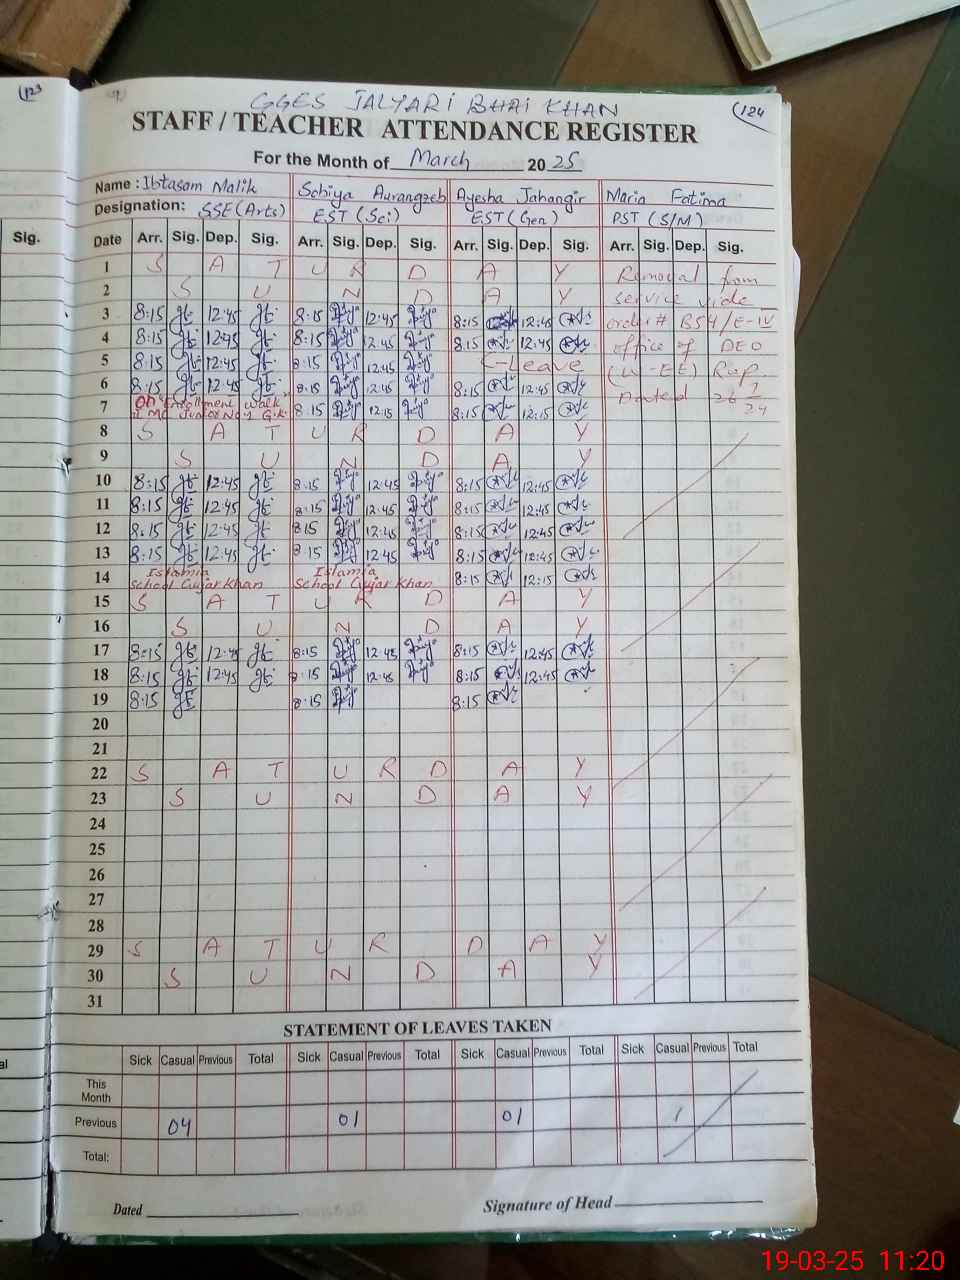 123
GGES JALYARI BHAI KHAN
124
STAFF / TEACHER ATTENDANCE REGISTER
For the Month of March 2025
Name : Ibtasam Malik Sobiya Aurangzeb Ayesha Jahangir Maria Fatima
Designation: SSE (Arts) EST (Sci) EST (Gen) PST (S/M)
Sig. Date Arr. Sig. Dep. Sig. Arr. Sig. Dep. Sig. Arr. Sig. Dep. Sig. Arr. Sig. Dep. Sig.
1 S A T U R D A Y Removal from
2 S U N D A Y service vide
3 8:15 12:45 8:15 12:45 8:15 12:45 order #
4 8:15 12:45 8:15 12:45 8:15 12:45 office of DEO
5 8:15 12:45 8:15 12:45 C-Leave (W-EE) Rwp
6 8:15 12:45 8:15 12:45 8:15 12:45 Dated 26
7 On Enrollment Walk 8:15 12:15 8:15 12:15
8 S A T U R D A Y
9 S U N D A Y
10 8:15 12:45 8:15 12:45 8:15 12:45
11 8:15 12:45 8:15 12:45 8:15 12:45
12 8:15 12:45 8:15 12:45 8:15 12:45
13 8:15 12:45 8:15 12:45 8:15 12:45
14 Islamia School Gujar Khan Islamia School Gujar Khan 8:15 12:15
15 S A T U R D A Y
16 S U N D A Y
17 8:15 12:45 8:15 12:45 8:15 12:45
18 8:15 12:45 8:15 12:45 8:15 12:45
19 8:15 8:15 8:15
20
21
22 S A T U R D A Y
23 S U N D A Y
24
25
26
27
28
29 S A T U R D A Y
30 S U N D A Y
31
STATEMENT OF LEAVES TAKEN
Sick Casual Previous Total Sick Casual Previous Total Sick Casual Previous Total Sick Casual Previous Total
This
Month
Previous 04 01 01 1
Total:
Dated Signature of Head
19-03-25 11:20